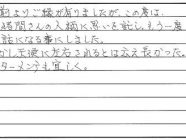 前よりご縁が有りましたが、この度は、
時間さんの入柄に思いを託し、もう一度
話になる事にしました。
し天候に左右されるとは云え長かった。
ターメンテも宜しく。